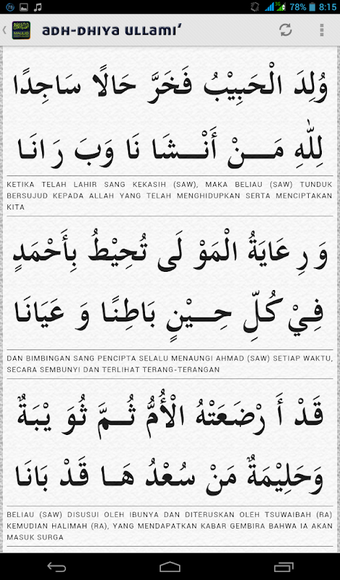 78% 8:15
ADH-DHIYA ULLAMI'
وُلِدَ الْحَبِيْبُ فَخَرَّ حَالًا سَاجِدًا
لِلّٰهِ مَـــنْ أَنْـــشَا نَا وَبَ رَ انَا
KETIKA TELAH LAHIR SANG KEKASIH (SAW), MAKA BELIAU (SAW) TUNDUK
BERSUJUD KEPADA ALLAH YANG TELAH MENGHIDUPKAN SERTA MENCIPTAKAN
KITA
وَ رِ عَايَةُ الْمَوْ لَى تُحِيْطُ بِأَحْمَدٍ
فِيْ كُلِّ حِـــيْنٍ بَاطِنًا وَ عَيَانَا
DAN BIMBINGAN SANG PENCIPTA SELALU MENAUNGI AHMAD (SAW) SETIAP WAKTU,
SECARA SEMBUNYI DAN TERLIHAT TERANG-TERANGAN
قَدْ أَ رْضَعَتْهُ الْأُمُّ ثُـــمَّ ثُوَ يْبَةٌ
وَحَلِيْمَةٌ مَنْ سُعْدُ هَـــا قَدْ بَانَا
BELIAU (SAW) DISUSUI OLEH IBUNYA DAN DITERUSKAN OLEH TSUWAIBAH (RA)
KEMUDIAN HALIMAH (RA), YANG MENDAPATKAN KABAR GEMBIRA BAHWA IA AKAN
MASUK SURGA